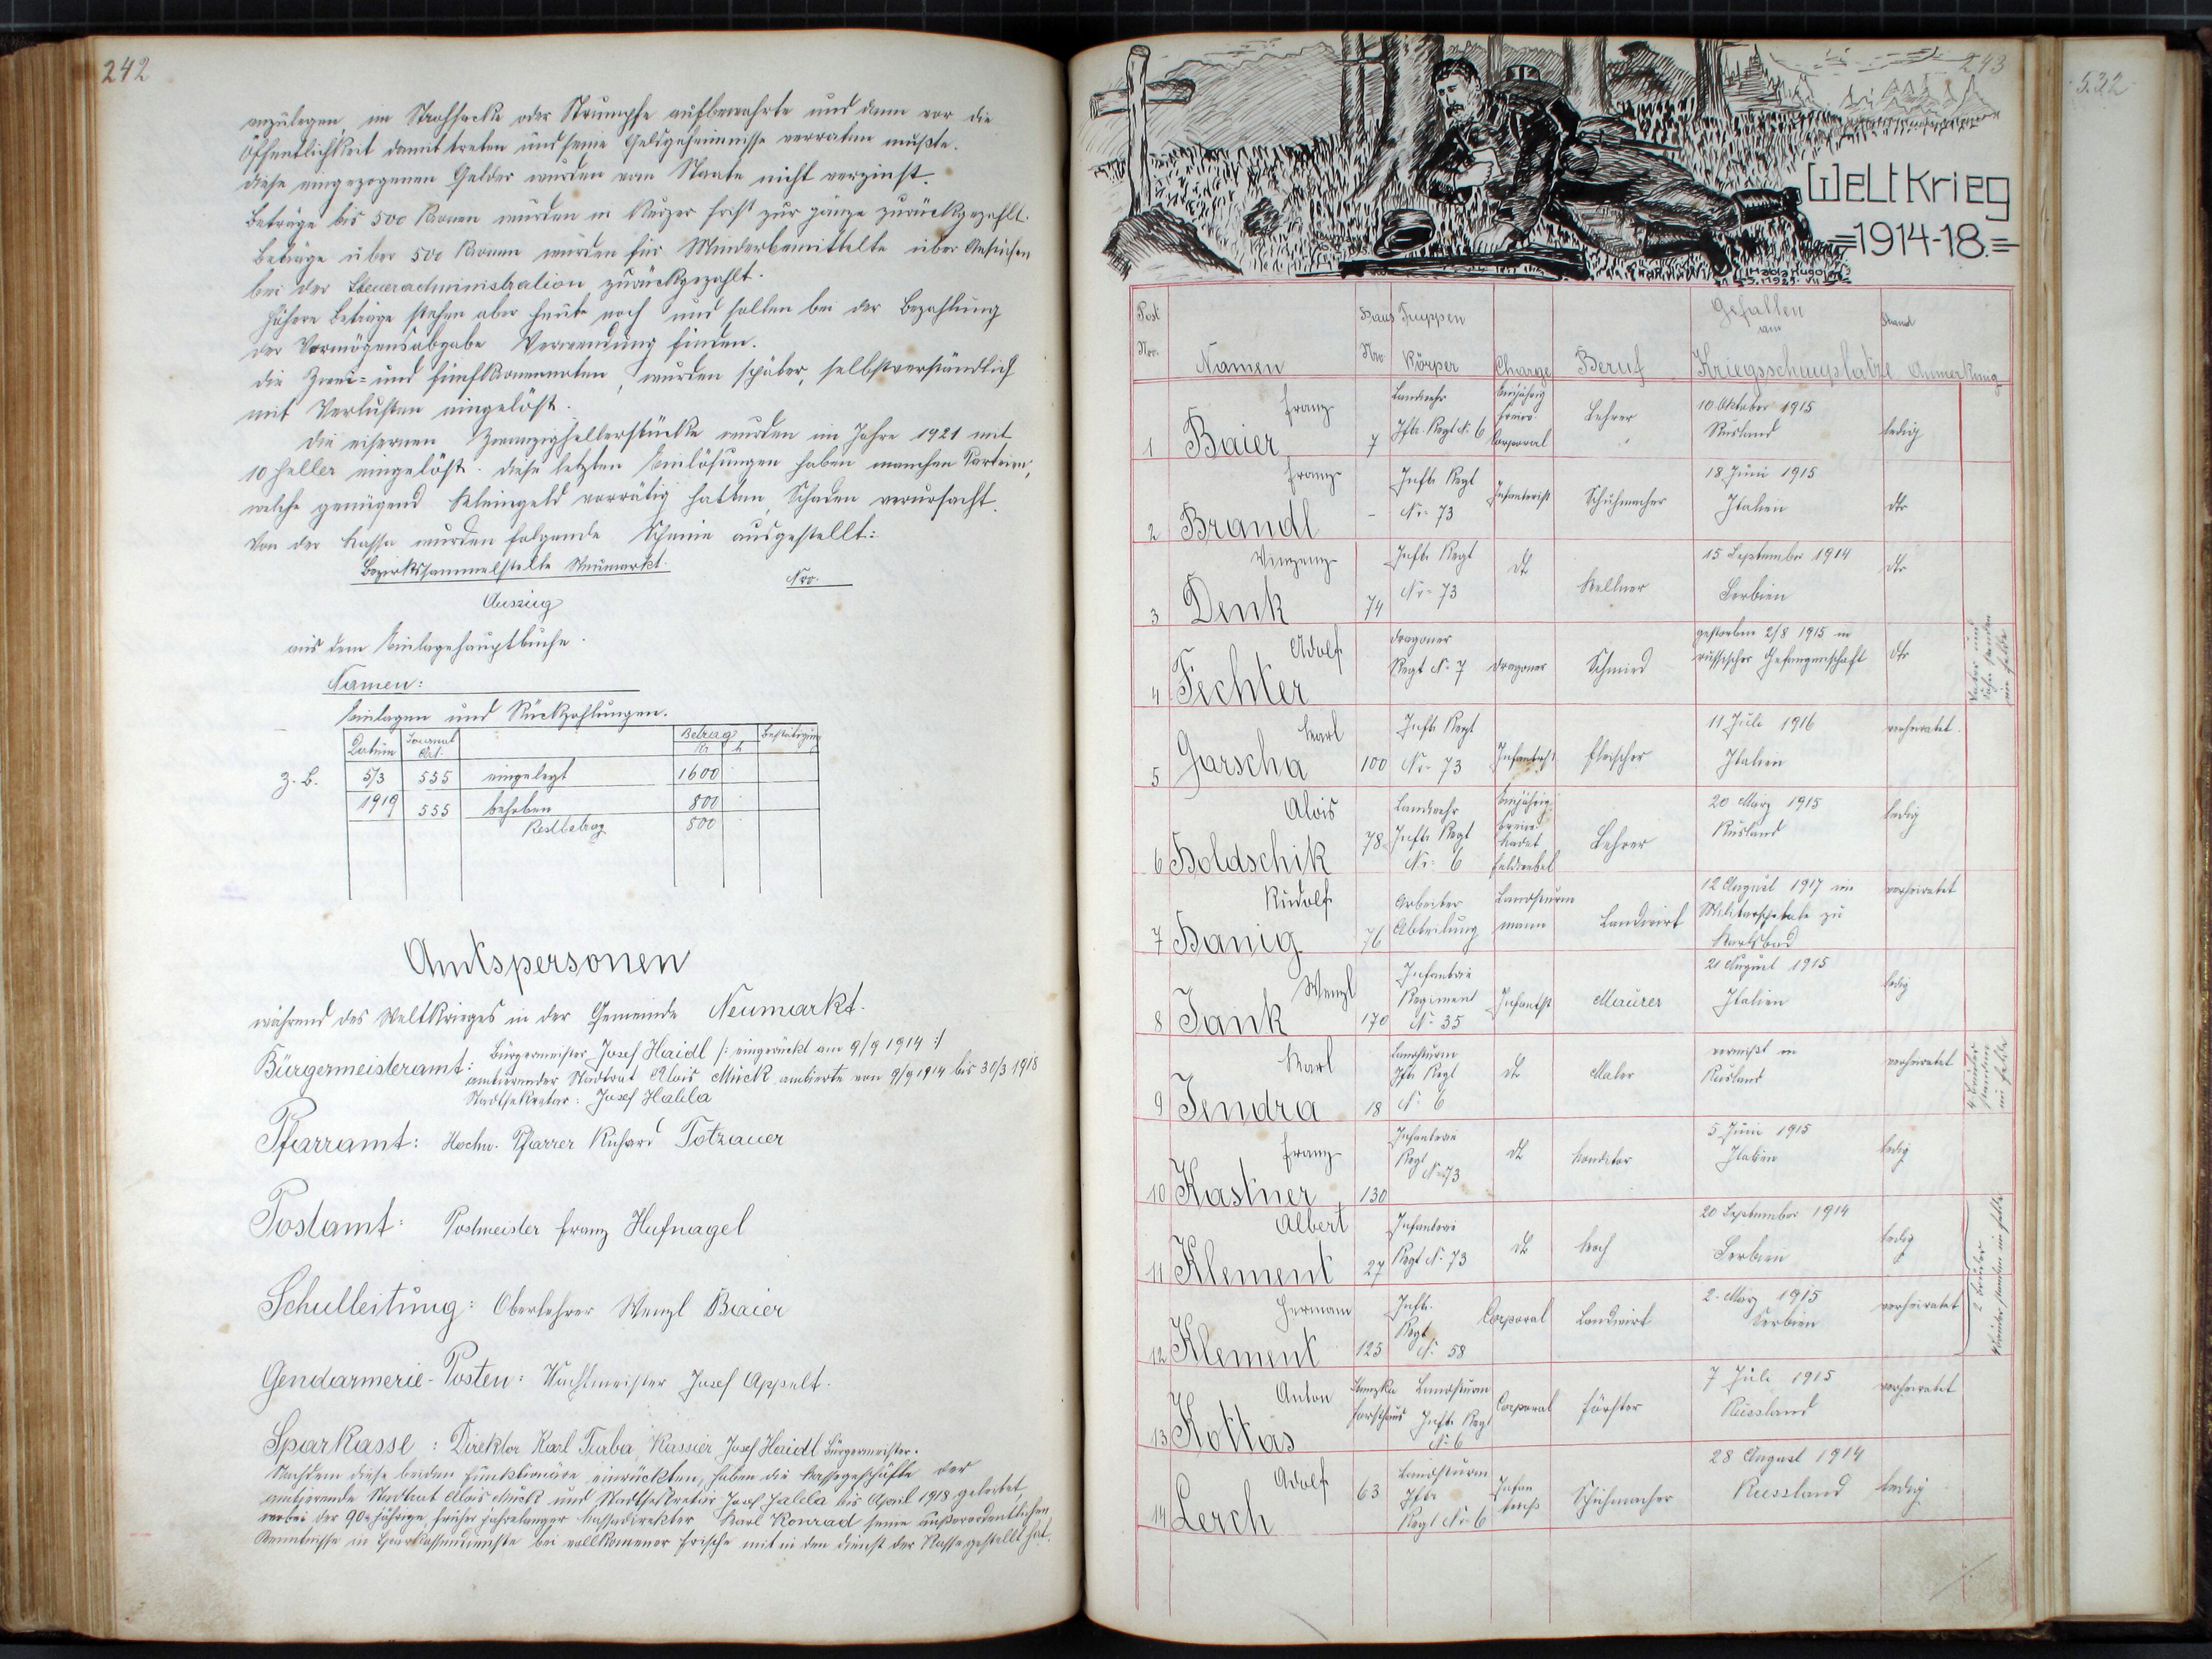 242
anzulegen, im Strohsacke oder Strumpfe aufbewahrte und dann vor die
Öffentlichkeit damit treten und seine Geldgeheimnisse verraten mußte.
Diese eingezogenen Gelder wurden vom Staate nicht verzinst.
Beträge bis 500 Kronen wurden in kurzer Frist zur gänze zurückgezahlt.
Beträge über 500 Kronen wurden für Minderbemittelte über Ansuchen
bei der Steueradministration zurückgezahlt.
Höhere Beträge stehen aber heute noch und sollen bei der Bezahlung
der Vermögensabgabe Verwendung finden.
Die Zwei- und Fünfkronennoten, wurden später, selbstverständlich
mit Verlusten eingelöst.
Die eisernen Zwanzighellerstücke wurden im Jahre 1921 mit
10 Heller eingelöst. Diese letzten Einlösungen haben manchen Parteien,
welche genügend Kleingeld vorrätig hatten, Schaden verursacht.
Von der Kassa wurden folgende Scheine ausgestellt:
Bezirkssammelstelle Neumarkt. Nro.
Auszug
aus dem Einlagehauptbuche.
Namen:
Einlagen und Rückzahlungen.
Datum Journal Art. Betrag Kr h Bestätigung
z. B. 5/3 535 eingelegt 1600
1919 555 behoben 800
Restbetrag 800
Amtspersonen
während des Weltkrieges in der Gemeinde Neumarkt.
Bürgermeisteramt: Bürgermeister Josef Haidl /: eingerückt am 9/9 1914 :/
amtierender Stadtrat Alois Mück amtierte von 9/9 1914 bis 30/3 1918
Stadtsekretär: Josef Habla
Pfarramt: Hochw. Pfarrer Richard Totzauer
Postamt: Postmeister Franz Hufnagel
Schulleitung: Oberlehrer Wenzl Baier
Gendarmerie-Posten: Wachtmeister Josef Appelt.
Sparkasse: Direktor Karl Turba, Kassier Josef Haidl Bürgermeister.
Nachdem diese beiden Funktionäre einrückten, haben die Kassegeschäfte der
amtierende Stadtrat Alois Mück und Stadtsekretär Josef Habla bis April 1918 geleitet,
wobei der 90-jährige, früher jahrelanger Kassedirektor Karl Konrad seine außerordentlichen
Kenntnisse in Sparkassendienste bei vollkomener Frische mit in den Dienst der Kasse gestellt hat.
243
Weltkrieg
=1914-18.=
Habla Hugo
Post Nro. Namen Haus Nro. Truppen Körper Charge Beruf Gefallen am Kriegsschauplatze Stand Anmerkung
1 Baier Franz 7 Landwehr Jftr. Regt N. 6 Einjährig Freiw. Corporal Lehrer 10 Oktober 1915 Rusland ledig
2 Brandl Franz - Inft. Regt Nr. 73 Infanterist Schuhmacher 18 Juni 1915 Italien dto
3 Denk Vinzenz 74 Inft. Regt Nr. 73 dto Kellner 15 September 1914 Serbien dto
4 Fechter Adolf Dragoner Regt N. 7 Dragoner Schmied gestorben 2/8 1915 in russischer Gefangenschaft dto Vater und Sohn standen im Felde
5 Garscha Karl 100 Inft. Regt Nr. 73 Infanterist Fleischer 11 Juli 1916 Italien verheiratet.
6 Holdschik Alois 78 Landwehr Inft. Regt Nr. 6 Einjährig. Freiw. Kadet Feldwebel Lehrer 20 März 1915 Rusland ledig
7 Hanig Rudolf 76 Arbeiter Abteilung Landsturm mann Landwirt 12 August 1917 im Militärspitale zu Karlsbad verheiratet
8 Jank Wenzl 170 Infanterie Regiment N. 35 Infantst Maurer 21 August 1915 Italien ledig
9 Jendra Karl 18 Landsturm Jft. Regt N. 6 dto Maler vermißt in Rusland verheiratet 4 Brüder standen im Felde
10 Kastner Franz 130 Infanterie Regt N. 73 dto Konditor 5 Juni 1915 Italien ledig
11 Klement Albert 27 Infanterie Regt N. 73 dto Koch 20 September 1914 Serbien ledig
12 Klement Hermann 125 Inft. Regt N. 58 Corporal Landwirt 2. März 1915 Serbien verheiratet
2 Brüder 4 Brüder standen im Felde
13 Kottas Anton Forsthaus Landsturm Inft. Regt N. 6 Corporal Förster 7 Juli 1915 Russland verheiratet
14 Lerch Adolf 63 Landsturm Jftr. Regt Nr. 6 Infanterist Schuhmacher 28 August 1914 Russland ledig
532